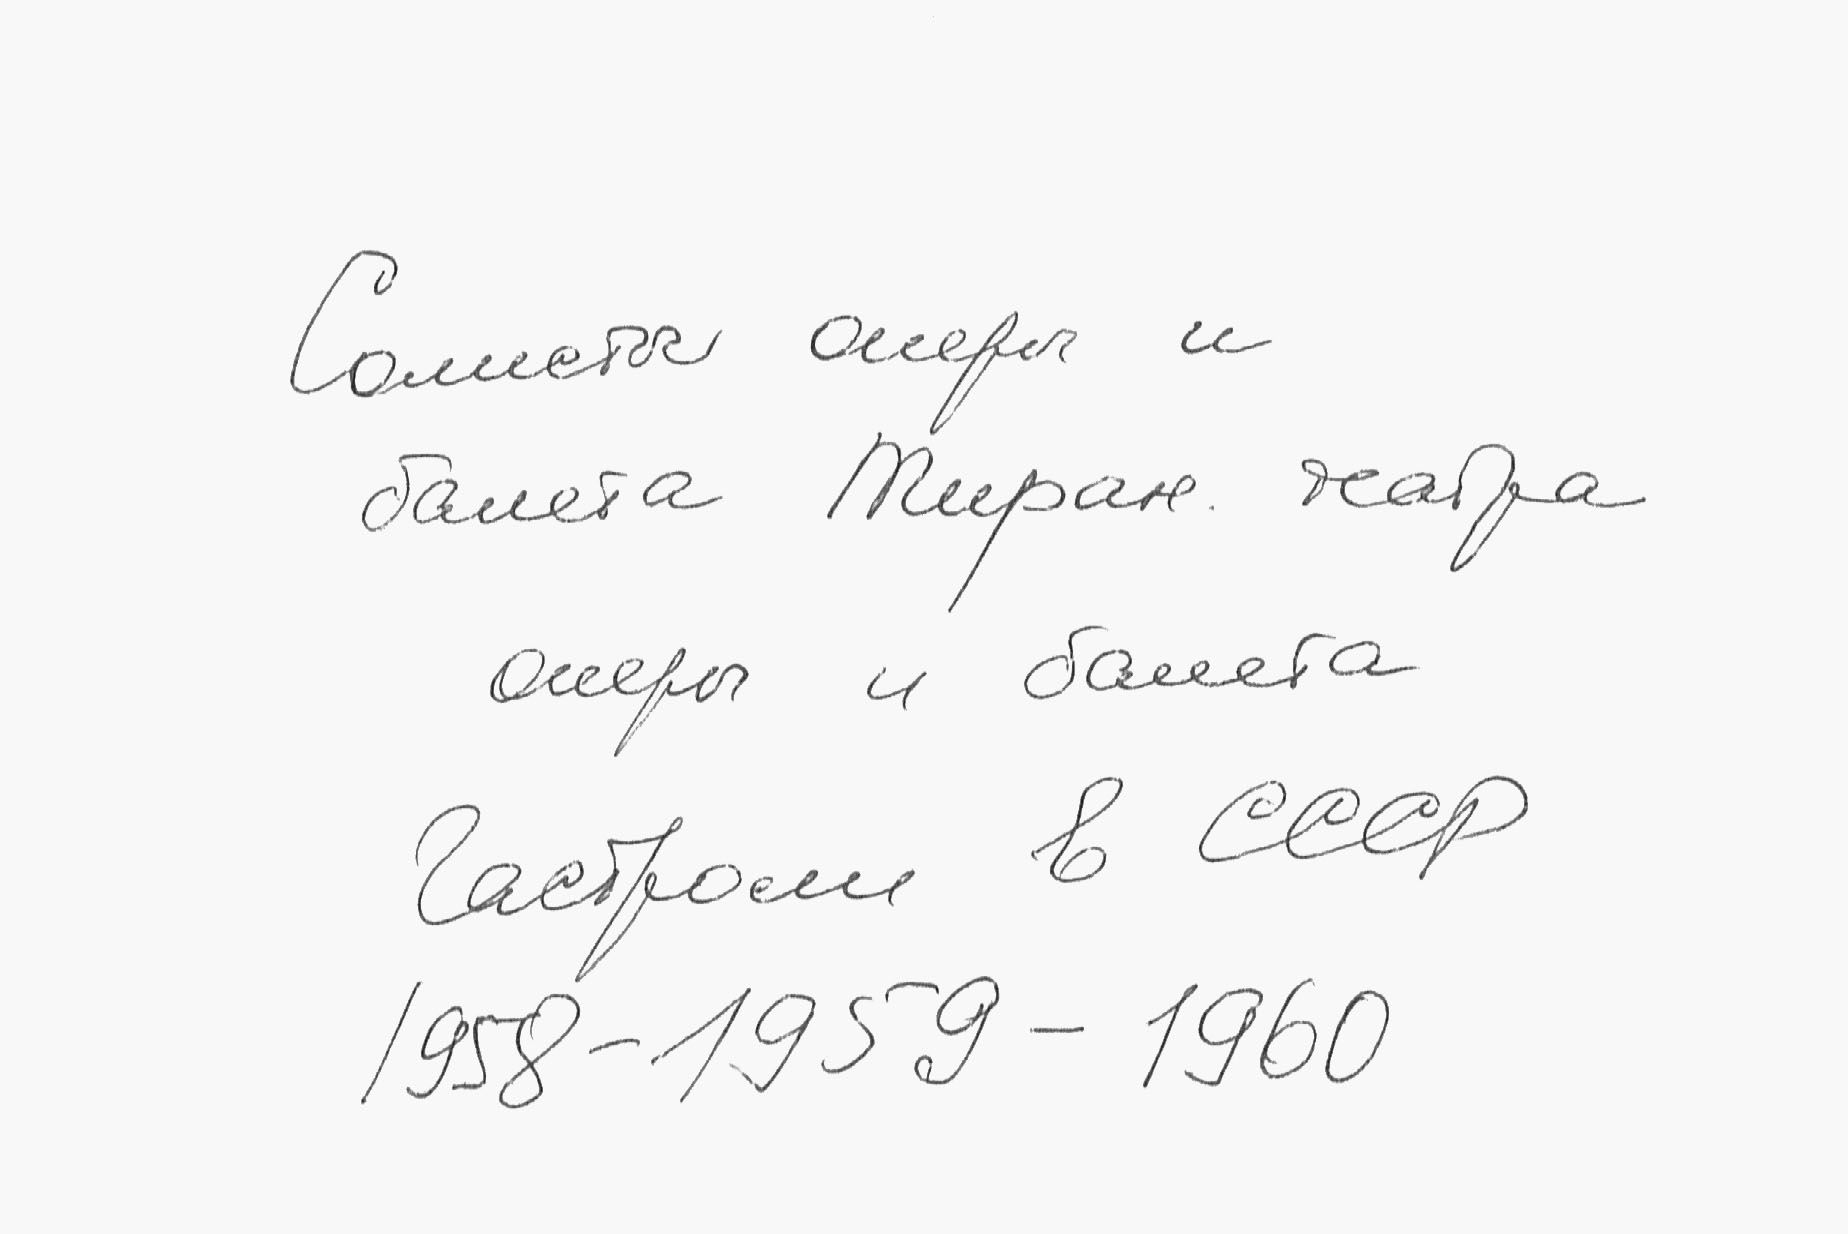 Солисты оперы и
балета Тиран. театра
оперы и балета
Гастроли в СССР
1958-1959-1960